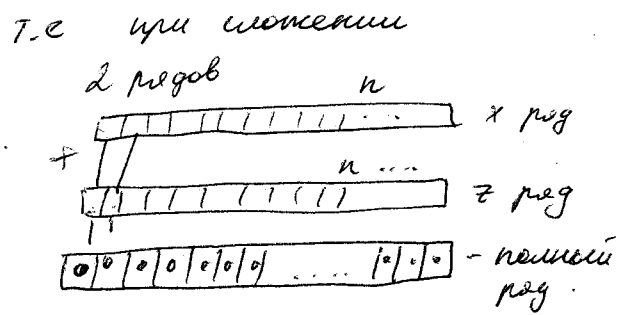 т.е при сложении
2 рядов
n
x ряд
+
n ....
z ряд
- полный
ряд.